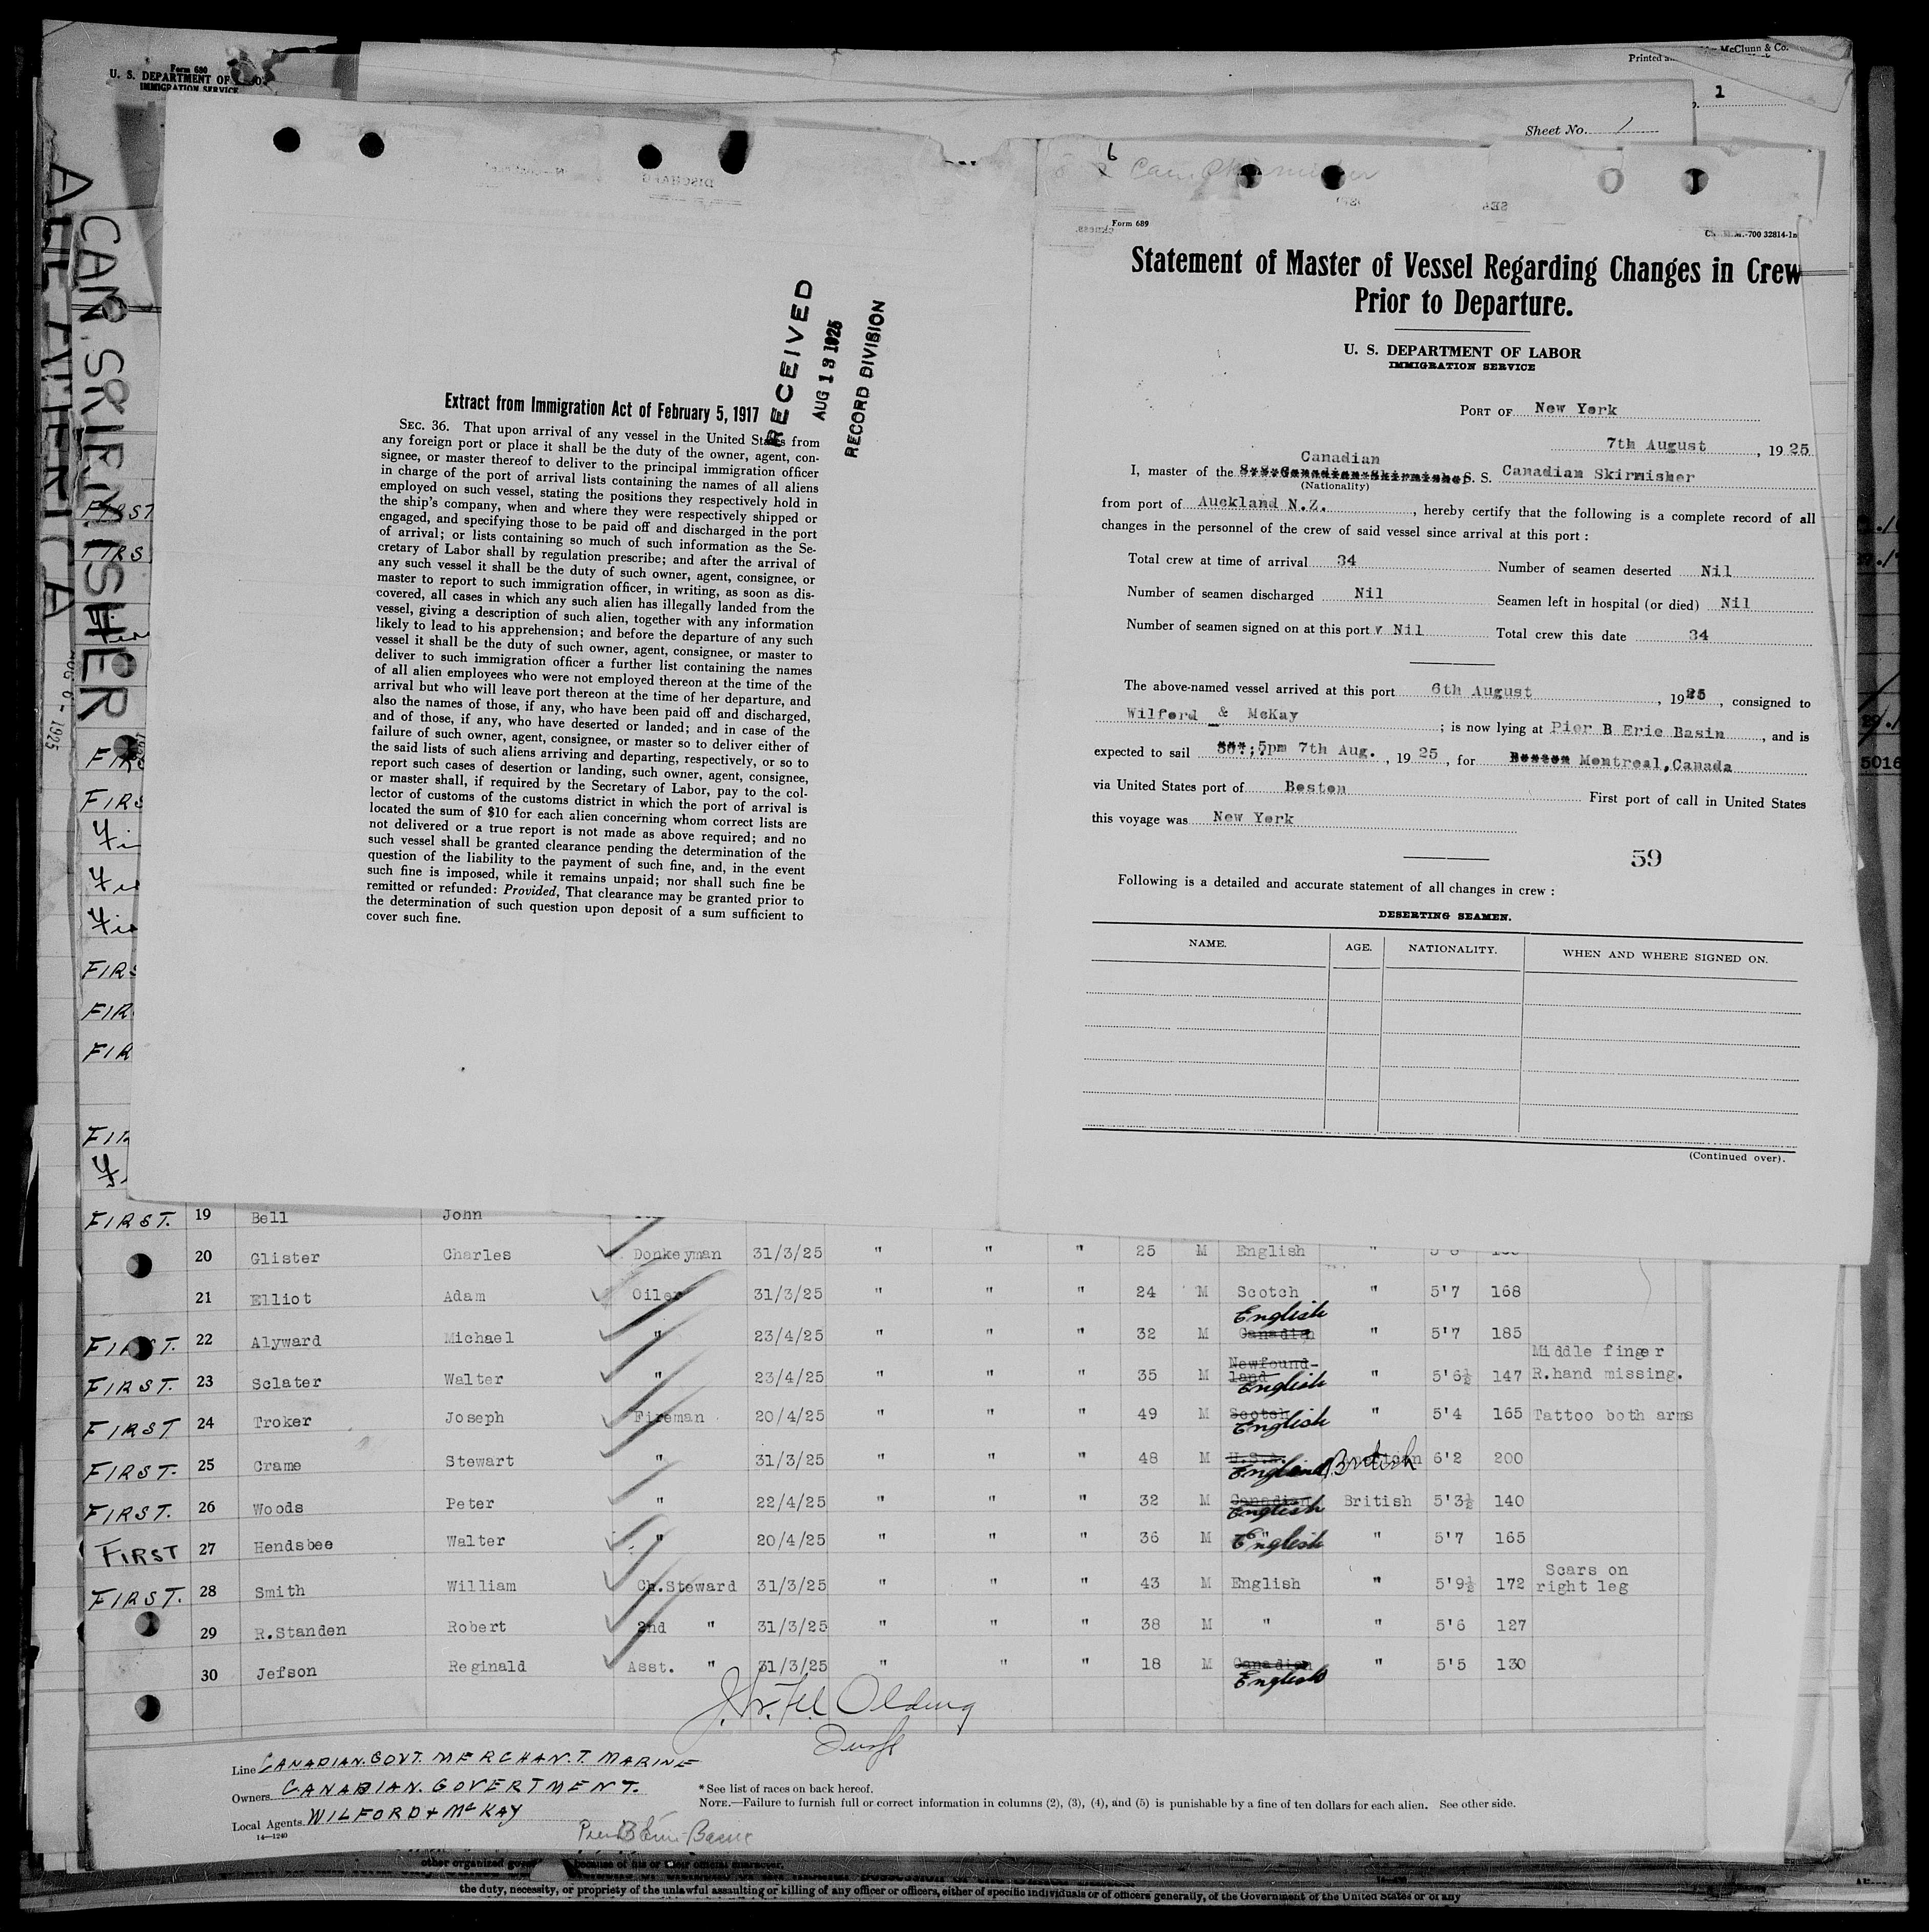 Form 680
U. S. DEPARTMENT OF
IMMIGRATION SERVICE
McClunn & Co.
Printed
1
Sheet No. 1
CAN. SKIRMISHER
AUG 6- 1925
RECEIVED
AUG 13 1925
RECORD DIVISION
Extract from Immigration Act of February 5, 1917
SEC. 36. That upon arrival of any vessel in the United States from
any foreign port or place it shall be the duty of the owner, agent, con-
signee, or master thereof to deliver to the principal immigration officer
in charge of the port of arrival lists containing the names of all aliens
employed on such vessel, stating the positions they respectively hold in
the ship's company, when and where they were respectively shipped or
engaged, and specifying those to be paid off and discharged in the port
of arrival; or lists containing so much of such information as the Se-
cretary of Labor shall by regulation prescribe; and after the arrival of
any such vessel it shall be the duty of such owner, agent, consignee, or
master to report to such immigration officer, in writing, as soon as dis-
covered, all cases in which any such alien has illegally landed from the
vessel, giving a description of such alien, together with any information
likely to lead to his apprehension; and before the departure of any such
vessel it shall be the duty of such owner, agent, consignee, or master to
deliver to such immigration officer a further list containing the names
of all alien employees who were not employed thereon at the time of the
arrival but who will leave port thereon at the time of her departure, and
also the names of those, if any, who have been paid off and discharged,
and of those, if any, who have deserted or landed; and in case of the
failure of such owner, agent, consignee, or master so to deliver either of
the said lists of such aliens arriving and departing, respectively, or so to
report such cases of desertion or landing, such owner, agent, consignee,
or master shall, if required by the Secretary of Labor, pay to the col-
lector of customs of the customs district in which the port of arrival is
located the sum of $10 for each alien concerning whom correct lists are
not delivered or a true report is not made as above required; and no
such vessel shall be granted clearance pending the determination of the
question of the liability to the payment of such fine, and, in the event
such fine is imposed, while it remains unpaid; nor shall such fine be
remitted or refunded: Provided, That clearance may be granted prior to
the determination of such question upon deposit of a sum sufficient to
cover such fine.
6
Form 689
700 32814-1m
Statement of Master of Vessel Regarding Changes in Crew
Prior to Departure.
U. S. DEPARTMENT OF LABOR
IMMIGRATION SERVICE
PORT OF New York
7th August, 1925
Canadian
I, master of the S.S.Canadian Skirmisher S. S. Canadian Skirmisher
(Nationality)
from port of Auckland N.Z., hereby certify that the following is a complete record of all
changes in the personnel of the crew of said vessel since arrival at this port :
Total crew at time of arrival 34 Number of seamen deserted Nil
Number of seamen discharged Nil Seamen left in hospital (or died) Nil
Number of seamen signed on at this port Nil Total crew this date 34
The above-named vessel arrived at this port 6th August, 1925, consigned to
Wilford & McKay ; is now lying at Pier B Erie Basin, and is
expected to sail 5pm 7th Aug., 1925, for Boston Montreal,Canada
via United States port of Boston First port of call in United States
this voyage was New York
59
Following is a detailed and accurate statement of all changes in crew :
DESERTING SEAMEN.
NAME. AGE. NATIONALITY. WHEN AND WHERE SIGNED ON.
(Continued over).
FIRST. 19 Bell John
20 Glister Charles Donkeyman 31/3/25 " " " 25 M English "
21 Elliot Adam Oiler 31/3/25 " " " 24 M Scotch " 5'7 168
FIRST. 22 Alyward Michael " 23/4/25 " " " 32 M Canadian English " 5'7 185
FIRST. 23 Sclater Walter " 23/4/25 " " " 35 M Newfound-land English " 5'6½ 147 Middle finger R.hand missing.
FIRST 24 Troker Joseph Fireman 20/4/25 " " " 49 M Scotch English " 5'4 165 Tattoo both arms
FIRST. 25 Crame Stewart " 31/3/25 " " " 48 M U.S.A. England British 6'2 200
FIRST. 26 Woods Peter " 22/4/25 " " " 32 M Canadian English British 5'3½ 140
FIRST 27 Hendsbee Walter " 20/4/25 " " " 36 M " English " 5'7 165
FIRST. 28 Smith William Ch.Steward 31/3/25 " " " 43 M English " 5'9½ 172 Scars on right leg
29 R.Standen Robert 2nd " 31/3/25 " " " 38 M " " 5'6 127
30 Jefson Reginald Asst. " 31/3/25 " " " 18 M Canadian English " 5'5 130
Olding
Line CANADIAN. GOVT. MERCHAN.T. MARINE
Owners CANADIAN. GOVERTMENT.
Local Agents WILFORD & McKAY
14—1240
* See list of races on back hereof.
NOTE.—Failure to furnish full or correct information in columns (2), (3), (4), and (5) is punishable by a fine of ten dollars for each alien. See other side.
because of his or their official character.
the duty, necessity, or propriety of the unlawful assaulting or killing of any officer or officers, either of specific individuals or of officers generally, of the Government of the United States or of any